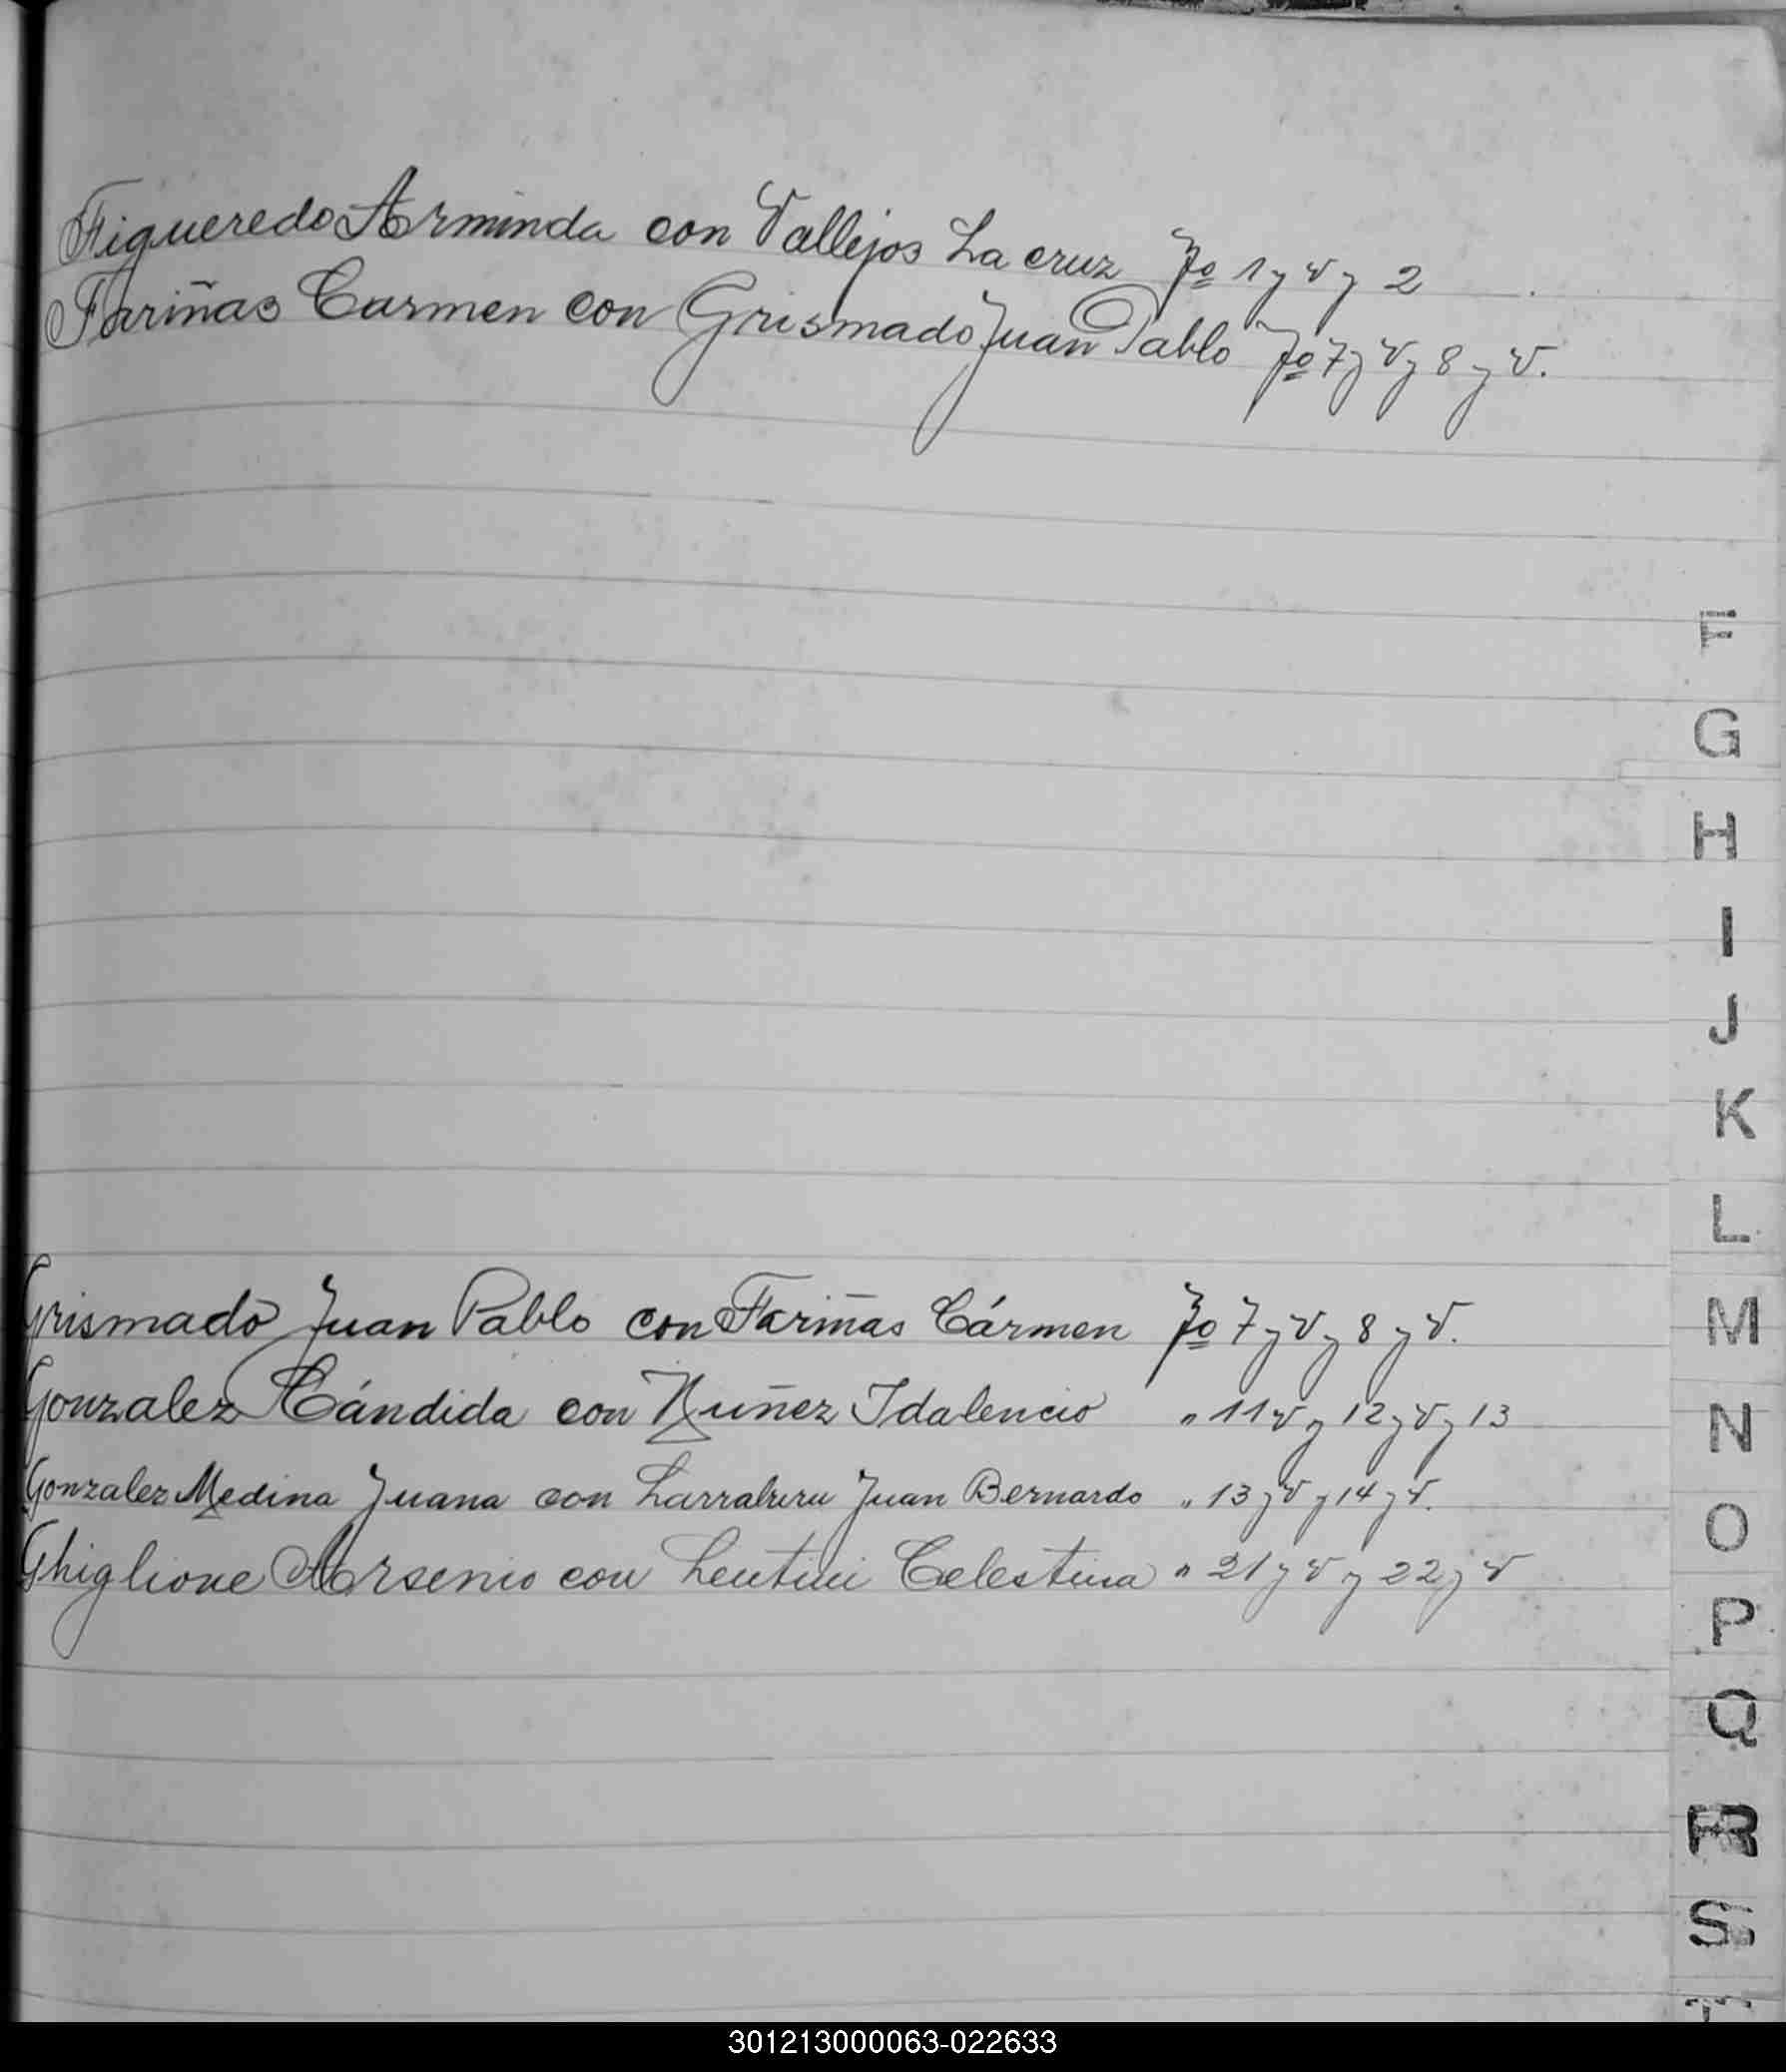 Figueredo Arminda con Vallejos La cruz Fo 1 y v y 2
Fariñas Carmen con Grismado Juan Pablo Fo 7 y v y 8 y v.
F
G
H
I
J
K
L
Grismado Juan Pablo con Fariñas Cármen Fo 7 y v y 8 y v.
M
Gonzalez Cándida con Nuñez Idalencio " 11 v y 12 y v y 13
N
Gonzalez Medina Juana con Larralzeru Juan Bernardo " 13 y v y 14 y v.
O
Ghiglione Arsenio con Lentini Celestina " 21 y v y 22 y v
P
Q
R
S
T
301213000063-022633